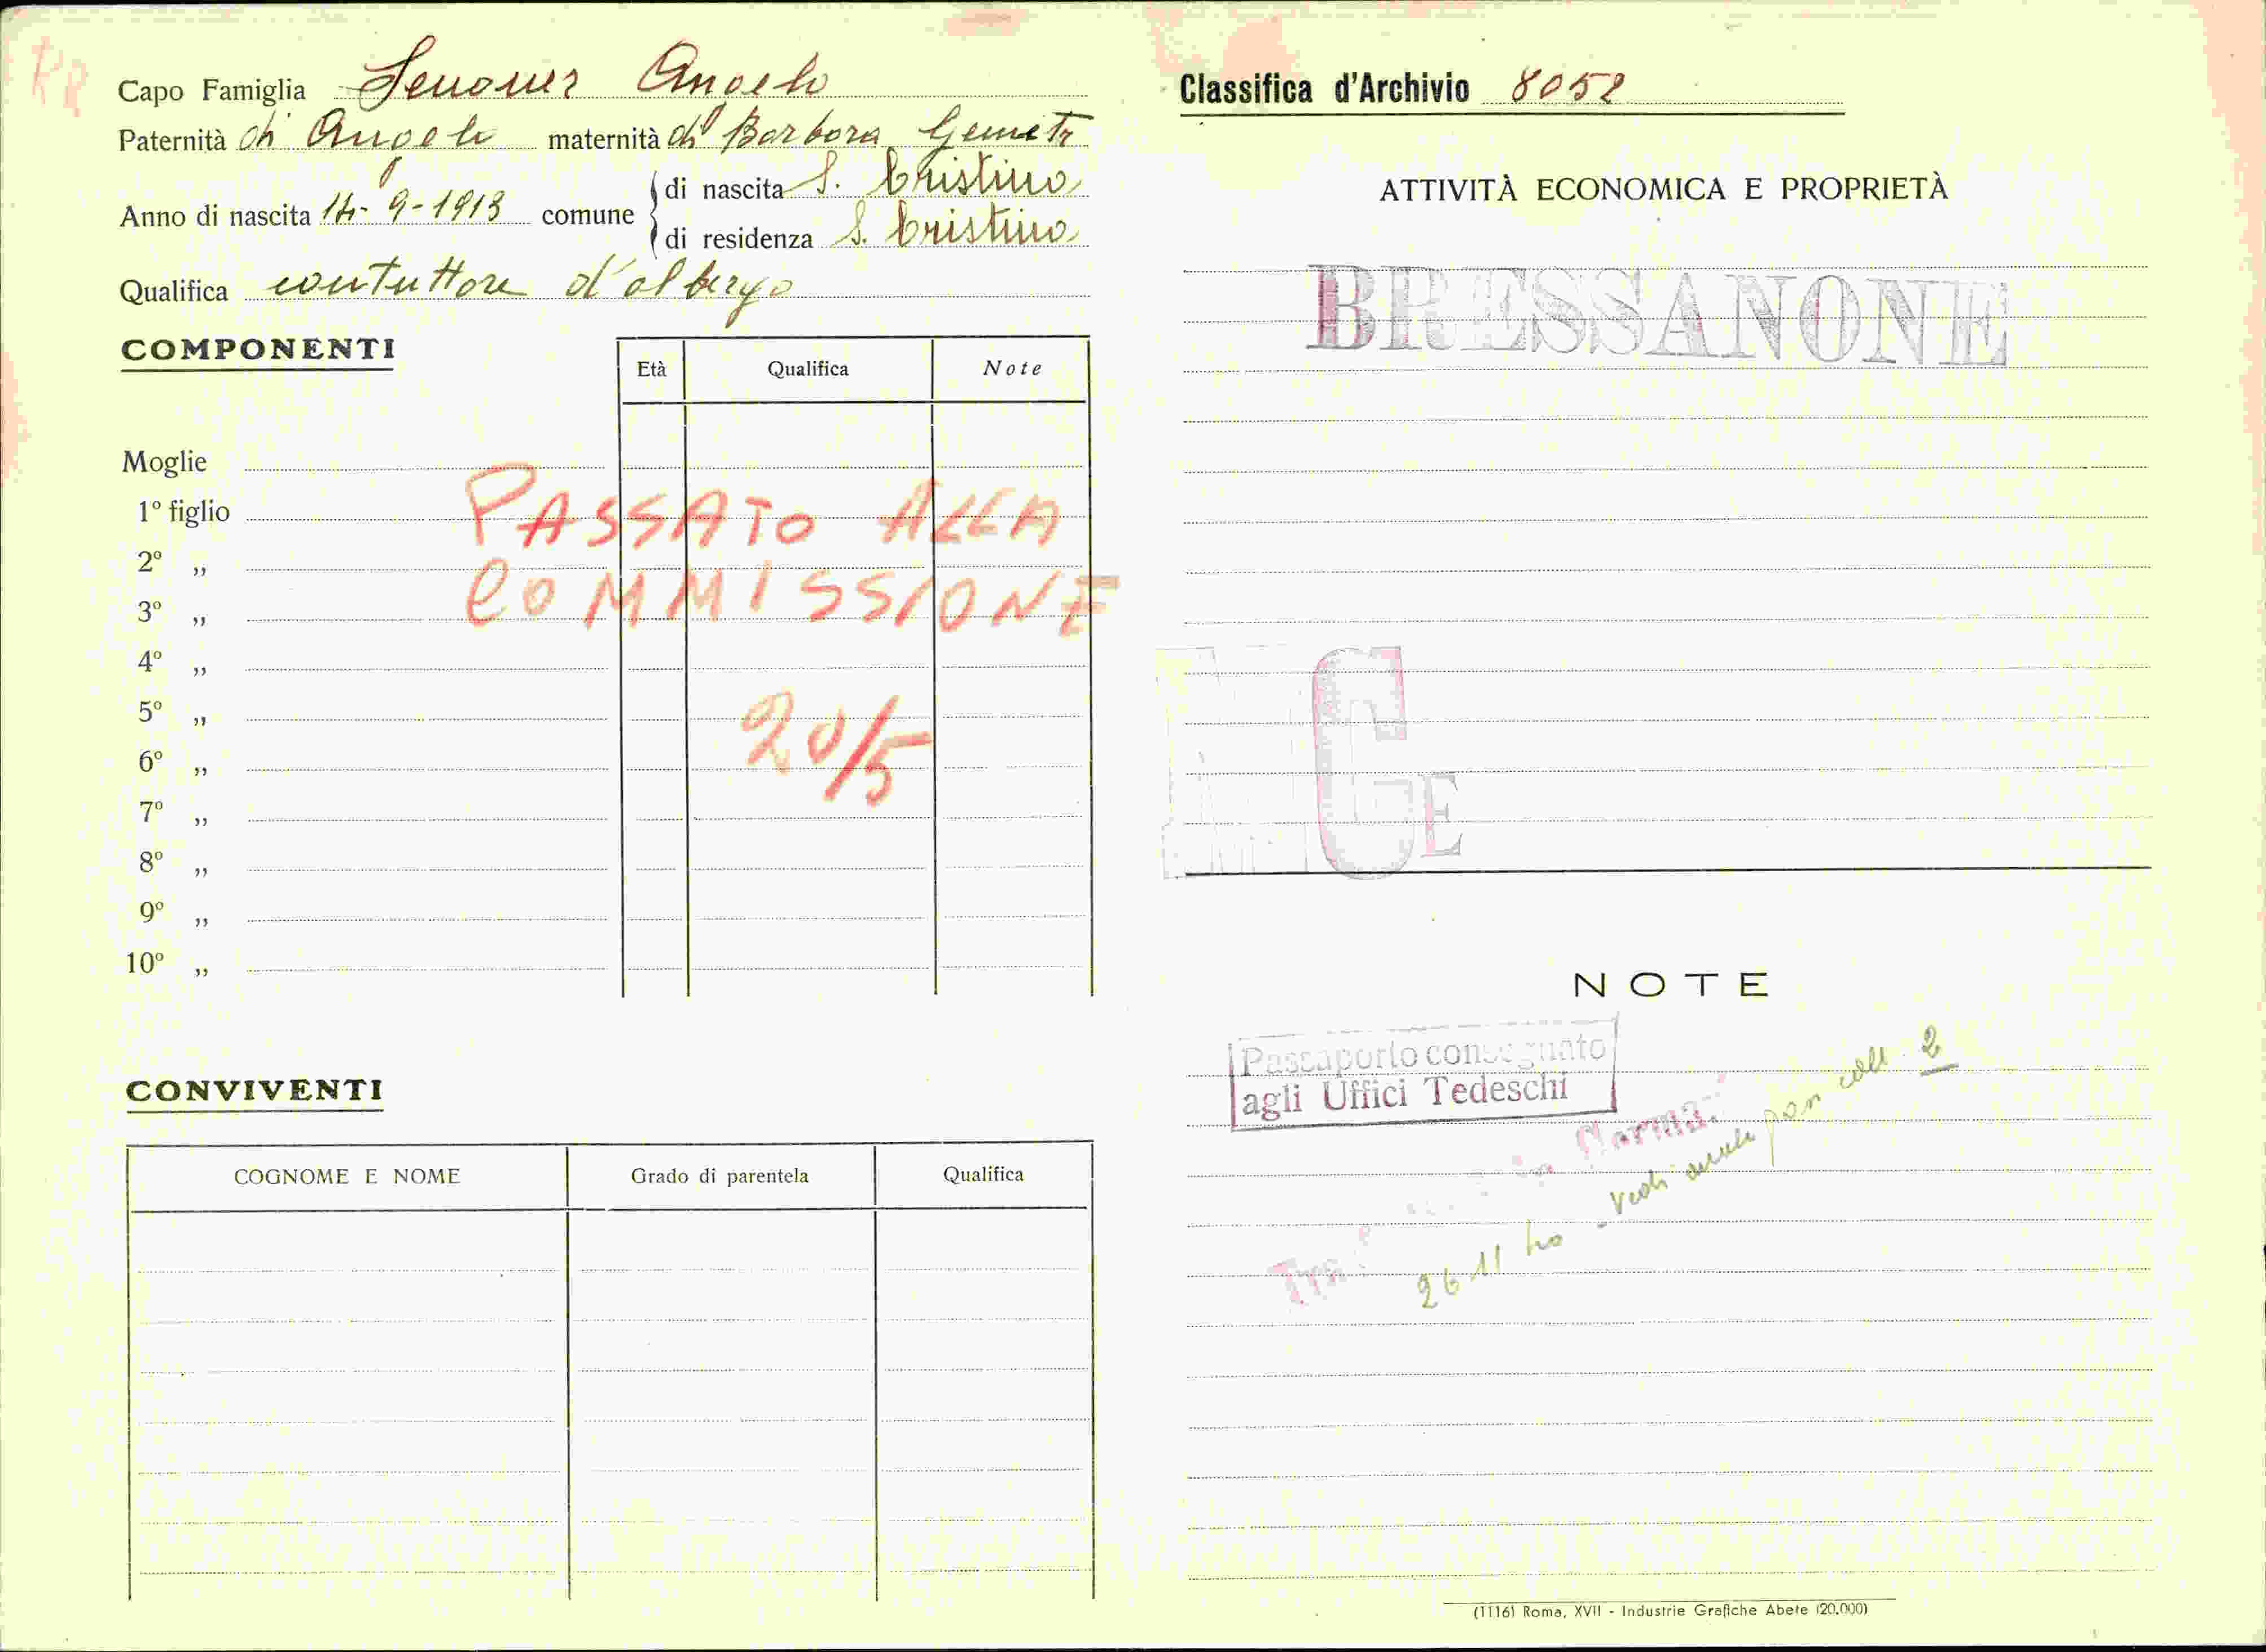 Capo Famiglia Senoner Angelo
Paternità di Angelo maternità di Barbara
Anno di nascita 14-9-1913 comune di nascita S. Cristina
di residenza S. Cristina
Qualifica conduttore d'albergo
COMPONENTI
Età Qualifica Note
Moglie
1º figlio
2º „
3º „
4º „
5º „
6º „
7º „
8º „
9º „
10º „
PASSATO ALLA
COMMISSIONE
20/5
CONVIVENTI
COGNOME E NOME Grado di parentela Qualifica
Classifica d'Archivio 8052
ATTIVITÀ ECONOMICA E PROPRIETÀ
BRESSANONE
GE
NOTE
Passaporto consegnato
agli Uffici Tedeschi
26 11 40 - vedi coll 2
(11161 Roma, XVII - Industrie Grafiche Abete (20.000)